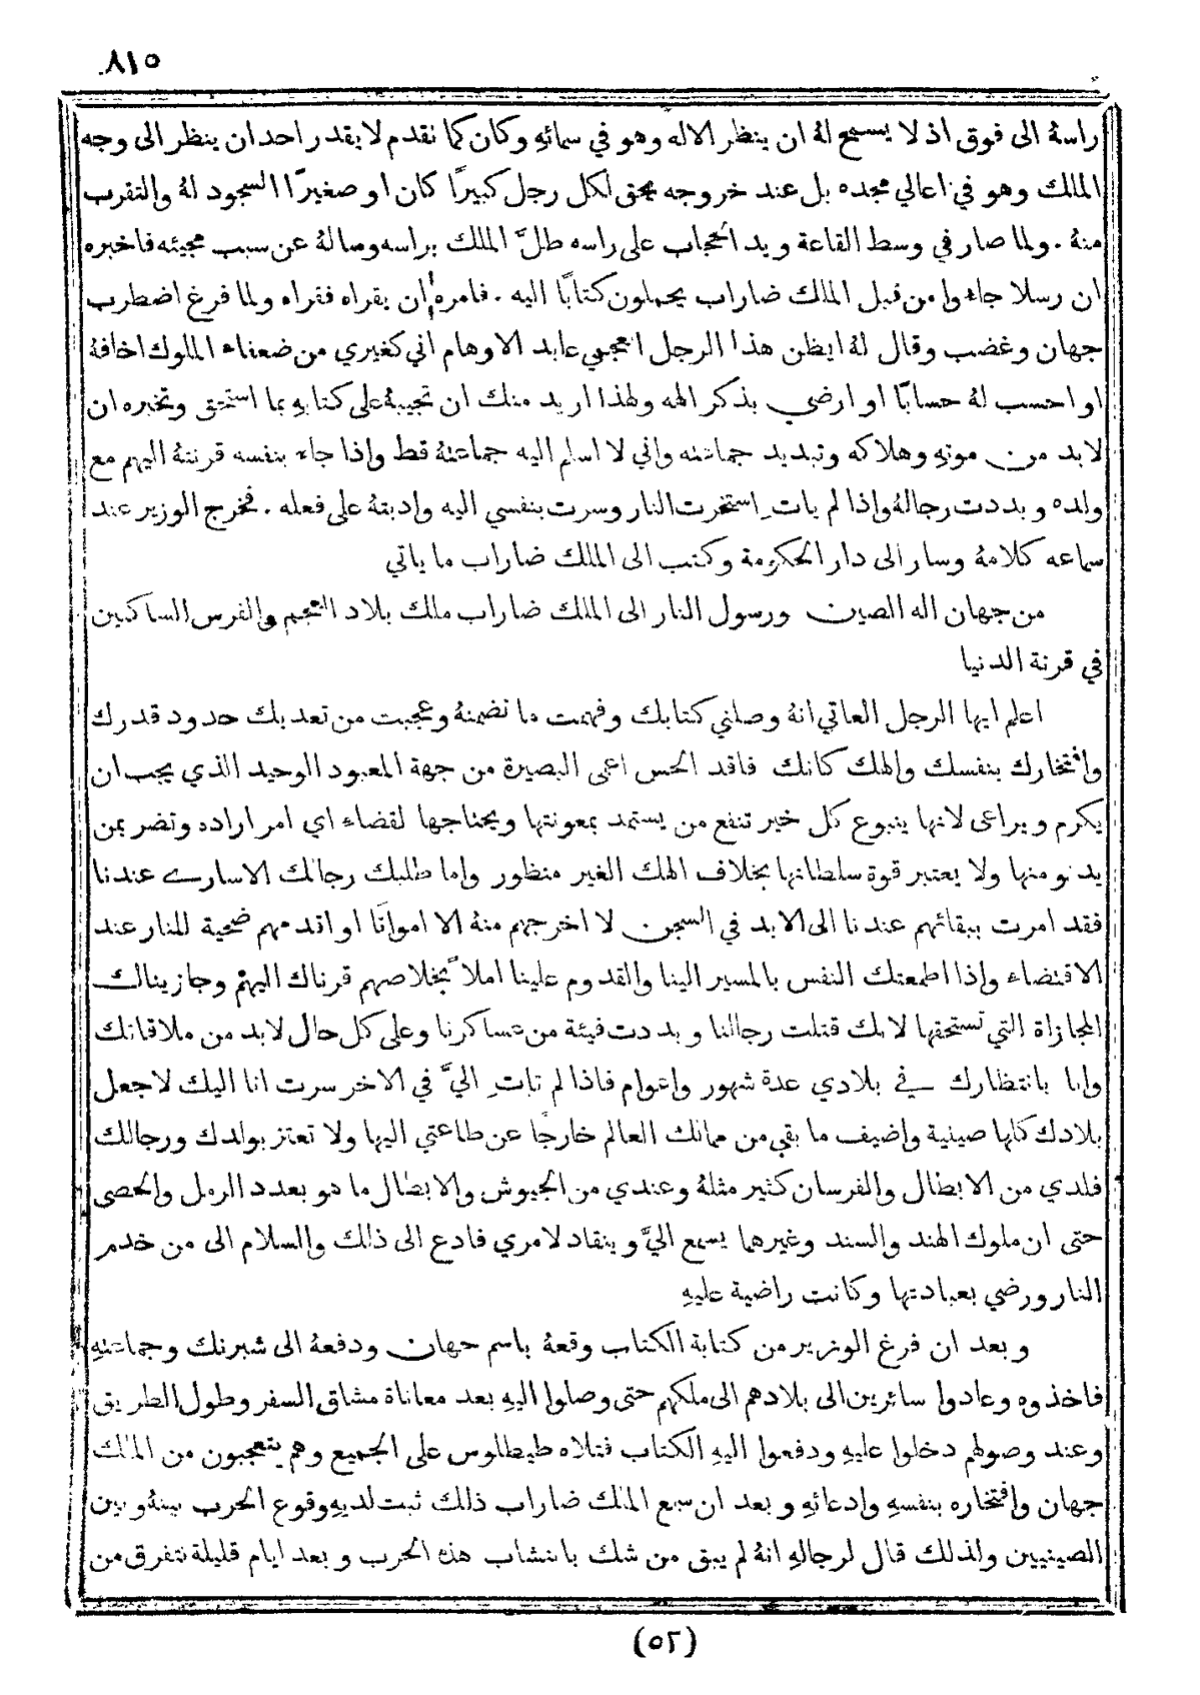 ٨١٥
راسهُ الى فوق اذ لا يسمح لهُ ان ينظر الاله وهو في سمائهِ وكان كما تقدم لا يقدر احد ان ينظر الى وجه
الملك وهو في اعالي مجده بل عند خروجه يحق لكل رجل كبيرًا كان او صغيرًا السجود لهُ والتقرب
منهُ . ولما صار في وسط القاعة ويد الحجاب على راسه طلَّ الملك براسه وسالهُ عن سبب مجيئه فاخبره
ان رسلا جاءوا من قبل الملك ضاراب يحملون كتابًا اليه . فامره ان يقراه فقراه ولما فرغ اضطرب
جهان وغضب وقال لهُ ايظن هذا الرجل العجمي عابد الاوهام اني كغيري من ضعفاء الملوك اخافهُ
او احسب لهُ حسابًا او ارضى بذكر الهه ولهذا اريد منك ان تجيبهُ على كتابهِ بما استحق وتخبره ان
لا بد من موتهِ وهلاكه وتبديد جماعته واني لا اسلم اليه جماعتهُ قط واذا جاء بنفسه قرنتهُ اليهم مع
ولده وبددت رجالهُ واذا لم ياتِ استخرت النار وسرت بنفسي اليه وادبتهُ على فعله . فخرج الوزير عند
سماعه كلامهُ وسار الى دار الحكومة وكتب الى الملك ضاراب ما ياتي
من جهان اله الصين ورسول النار الى الملك ضاراب ملك بلاد العجم والفرس الساكنين
في قرنة الدنيا
اعلم ايها الرجل العاتي انهُ وصلني كتابك وفهمت ما تضمنهُ وعجبت من تعديك حدود قدرك
وافتخارك بنفسك والهك كانك فاقد الحس اعمى البصيرة من جهة المعبود الوحيد الذي يجب ان
يكرم ويراعى لانها ينبوع كل خير تنفع من يستمد بمعونتها ويحتاجها لقضاء اي امر اراده وتضر بمن
يدنو منها ولا يعتبر قوة سلطانها بخلاف الهك الغير منظور واما طلبك رجالك الاسارى عندنا
فقد امرت ببقائهم عندنا الى الابد في السجن لا اخرجهم منهُ الا امواتًا او اقدمهم ضحية للنار عند
الاقتضاء واذا اطمعتك النفس بالمسير الينا والقدوم علينا املاً بخلاصهم قرناك اليهم وجازيناك
المجازاة التي تستحقها لانك قتلت رجالنا وبددت فيئة من عساكرنا وعلى كل حال لا بد من ملاقاتك
وانا بانتظارك في بلادي عدة شهور واعوام فاذا لم تاتِ اليَّ في الاخر سرت انا اليك لاجعل
بلادك كلها صينية واضيف ما بقي من ممالك العالم خارجًا عن طاعتي اليها ولا تعتز بولدك ورجالك
فلدي من الابطال والفرسان كثير مثلهُ وعندي من الجيوش والابطال ما هو بعدد الرمل والحصى
حتى ان ملوك الهند والسند وغيرهما يسمع اليَّ وينقاد لامري فادع الى ذلك والسلام الى من خدم
النار ورضي بعبادتها وكانت راضية عليهِ
وبعد ان فرغ الوزير من كتابة الكتاب وقعهُ باسم جهان ودفعهُ الى شبرنك وجماعتهِ
فاخذوه وعادوا سائرين الى بلادهم الى ملكهم حتى وصلوا اليهِ بعد معاناة مشاق السفر وطول الطريق
وعند وصولهم دخلوا عليهِ ودفعوا اليهِ الكتاب فتلاه طيطلوس على الجميع وهم يتعجبون من الملك
جهان وافتخاره بنفسهِ وادعائهِ وبعد ان سمع الملك ضاراب ذلك ثبت لديهِ وقوع الحرب بينهُ وبين
الصينيين ولذلك قال لرجالهِ انهُ لم يبق من شك بانتشاب هذه الحرب وبعد ايام قليلة نتفرق من
(٥٢)